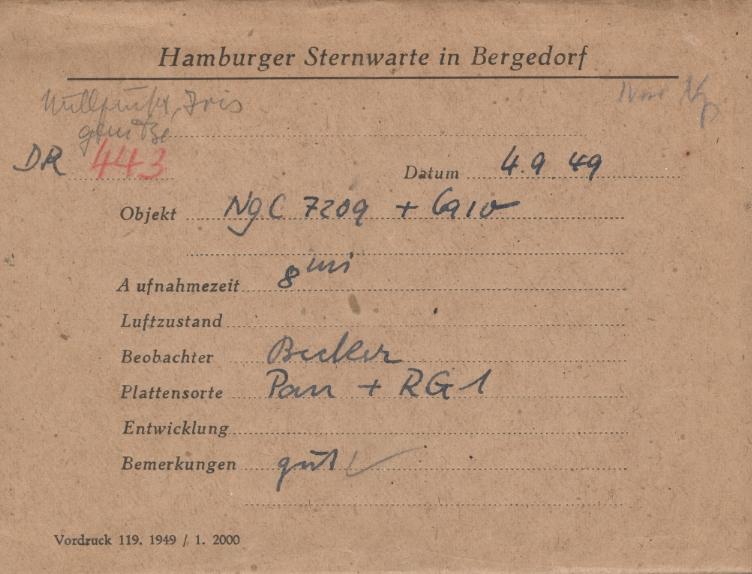 Hamburger Sternwarte in Bergedorf
Nullpunkt, Iris
DR 443
Datum 4.9.49
Objekt NgC 7209 +
Aufnahmezeit 8 mi
Luftzustand
Beobachter Becker
Plattensorte Pan + RG1
Entwicklung
Bemerkungen gut
Vordruck 119. 1949 / 1. 2000